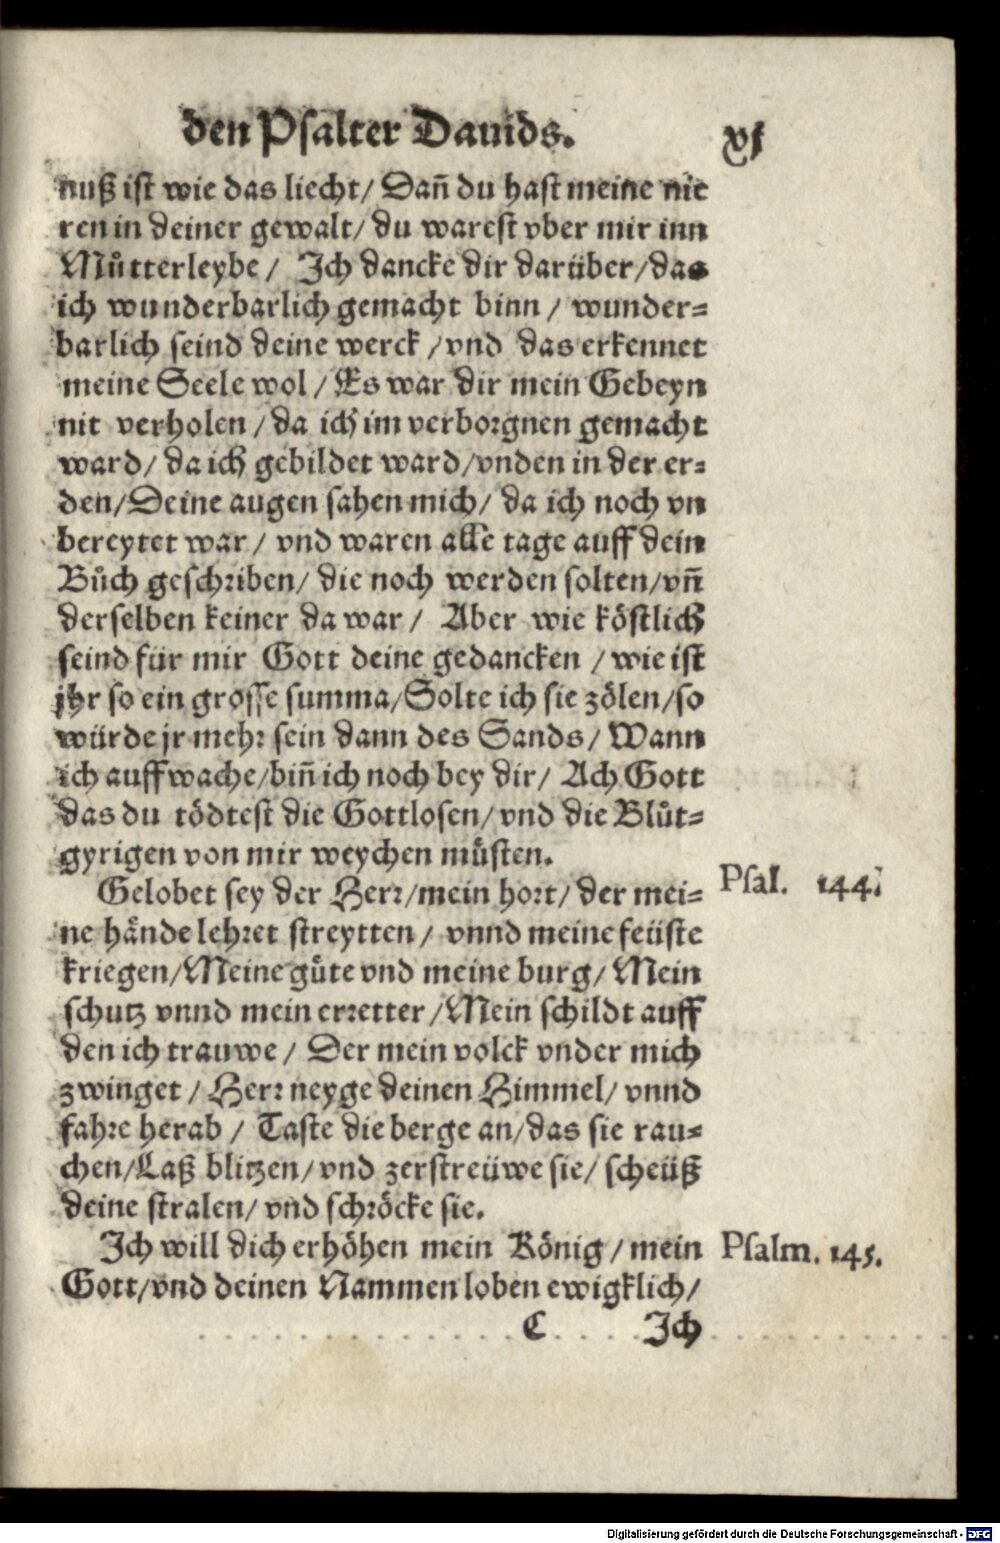 den Psalter Dauids. xj
nuß ist wie das liecht/ Dañ du hast meine nie
ren in deiner gewalt/ du warest vber mir inn
Můtterleybe/ Ich dancke dir darüber/das
ich wunderbarlich gemacht binn/ wunder=
barlich seind deine werck/vnd das erkennet
meine Seele wol/ Es war dir mein Gebeyn
nit verholen/da ich im verborgnen gemacht
ward/ da ich gebildet ward/vnden in der er=
den/Deine augen sahen mich/ da ich noch vn
bereytet war/ vnd waren alle tage auff dein
Bůch geschriben/ die noch werden solten/vñ
derselben keiner da war/ Aber wie köstlich
seind für mir Gott deine gedancken/wie ist
jhr so ein grosse summa/Solte ich sie zölen/so
würde jr mehr sein dann des Sands/ Wann
ich auffwache/biñ ich noch bey dir/ Ach Gott
das du tödtest die Gottlosen/vnd die Blůt=
gyrigen von mir weychen müsten.
Gelobet sey der Herr/mein hort/ der mei= Psal. 144.
ne hände lehret streytten/ vnnd meine feüste
kriegen/Meine güte vnd meine burg/ Mein
schutz vnnd mein erretter/Mein schildt auff
den ich trauwe/ Der mein volck vnder mich
zwinget/ Herr neyge deinen Himmel/ vnnd
fahre herab/ Taste die berge an/das sie rau=
chen/Laß blitzen/vnd zerstreüwe sie/ scheüß
deine stralen/ vnd schröcke sie.
Ich will dich erhöhen mein König/mein Psalm. 145.
Gott/vnd deinen Nammen loben ewigklich/
C Ich
Digitalisierung gefördert durch die Deutsche Forschungsgemeinschaft - DFG